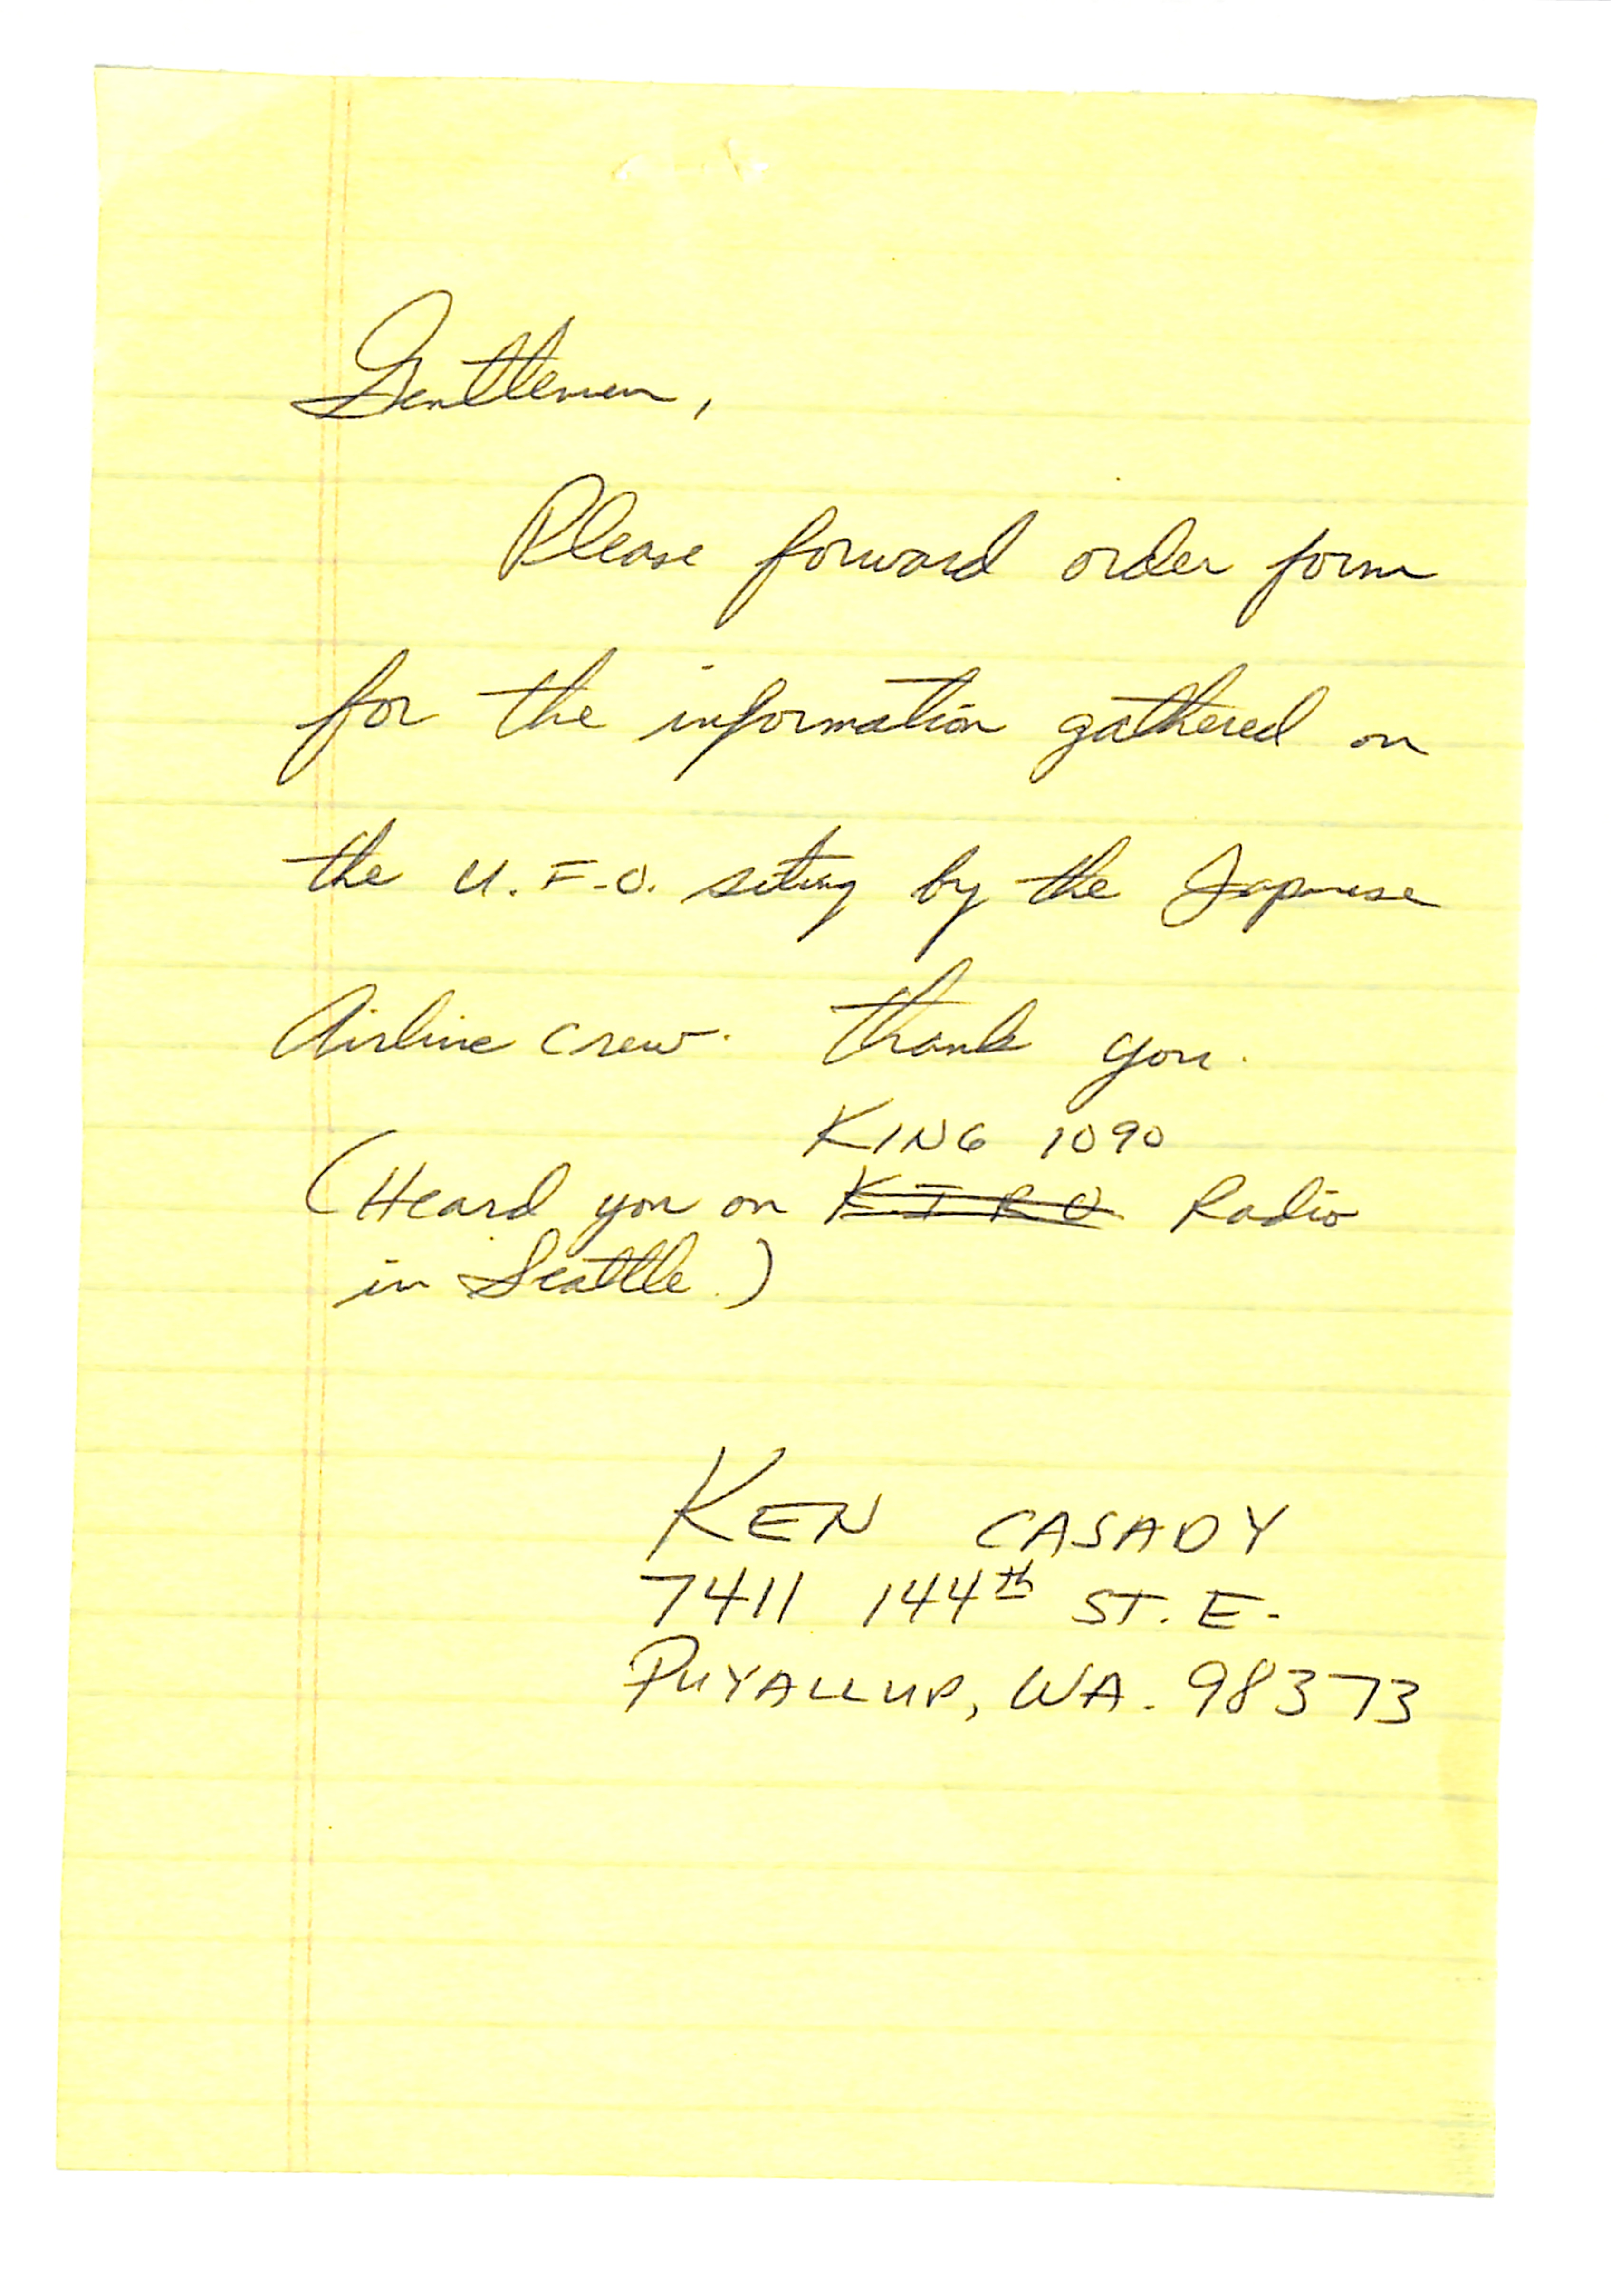 Gentlemen,
Please forward order form
for the information gathered on
the U.F.O. siting by the Japnese
Airline crew. Thank you.
KING 1090
(Heard you on KIRO Radio
in Seattle.)
KEN CASADY
7411 144th ST. E.
PUYALLUP, WA. 98373